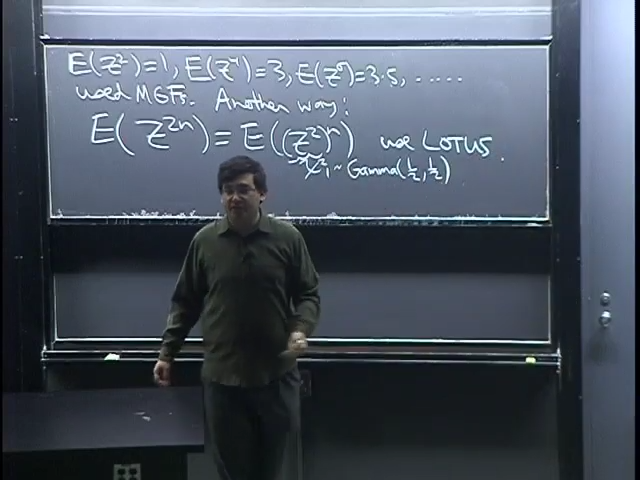 E(Z²)=1, E(Z⁴)=3, E(Z⁶)=3·5, .....
used MGFs. Another way:
E(Z²ⁿ) = E((Z²)ⁿ) use LOTUS.
χ²₁ ~ Gamma(½,½)